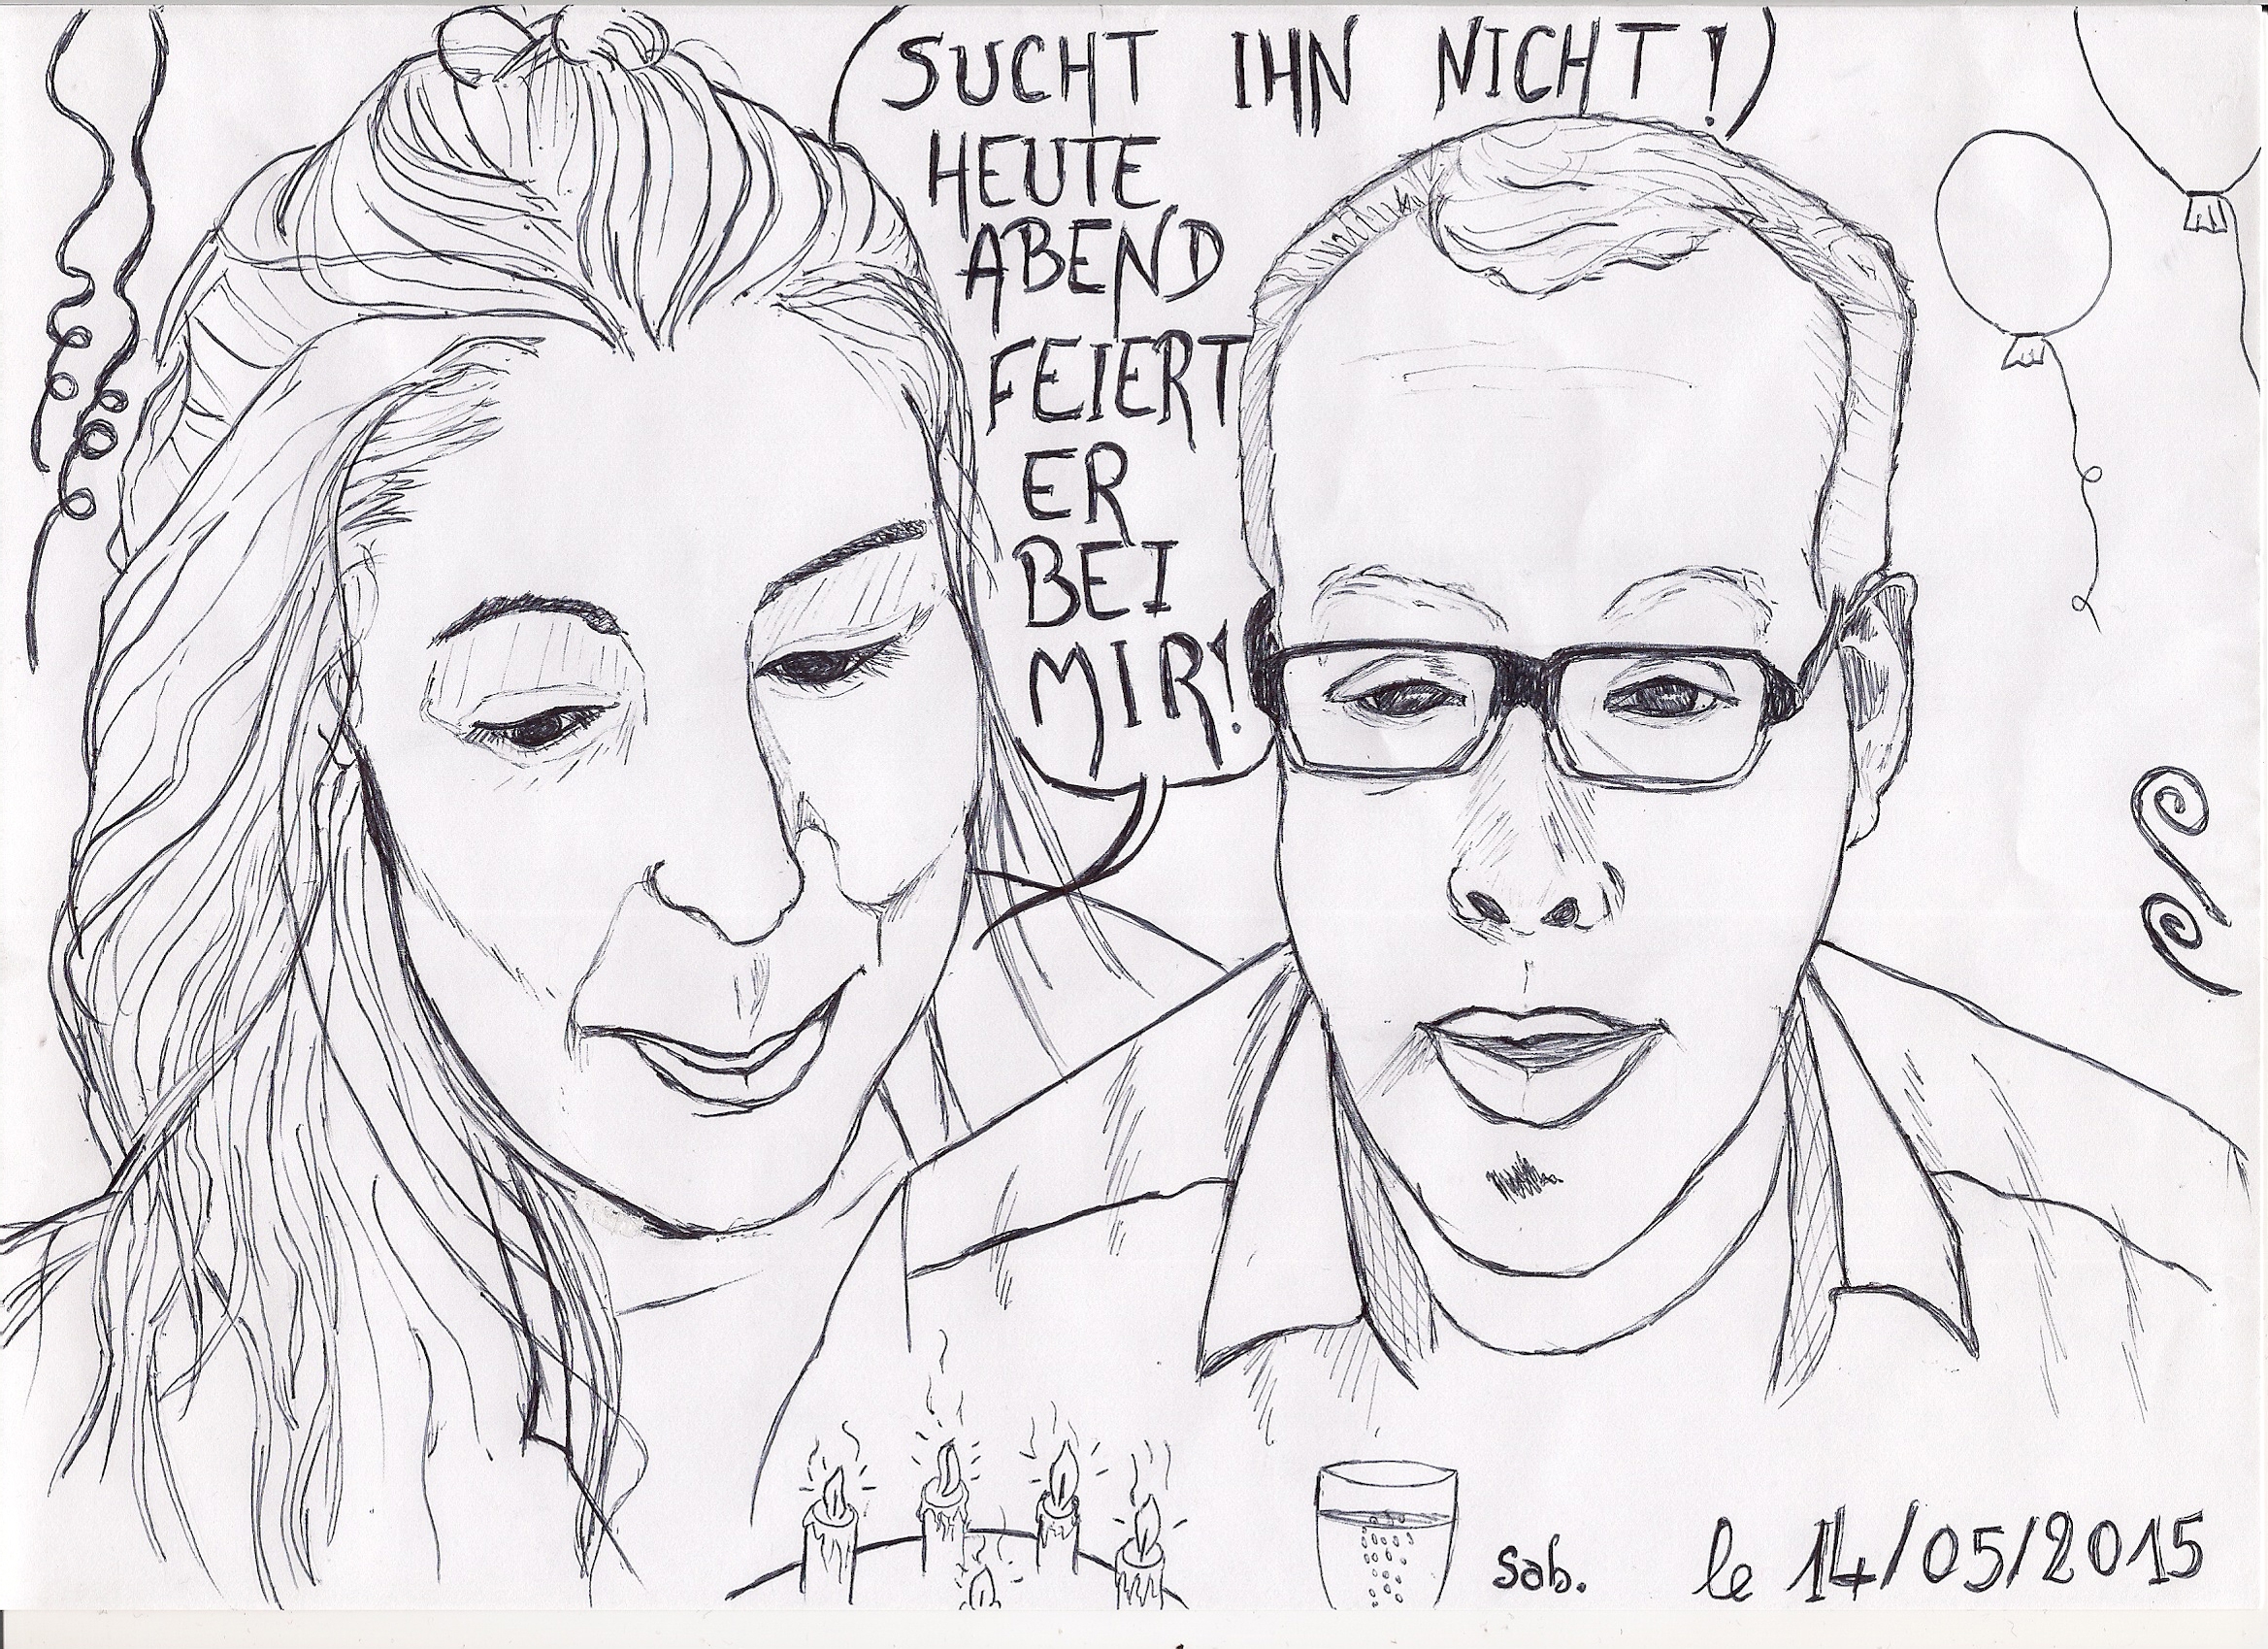 SUCHT IHN NICHT!
HEUTE
ABEND
FEIERT
ER
BEI
MIR!
sab. le 14/05/2015